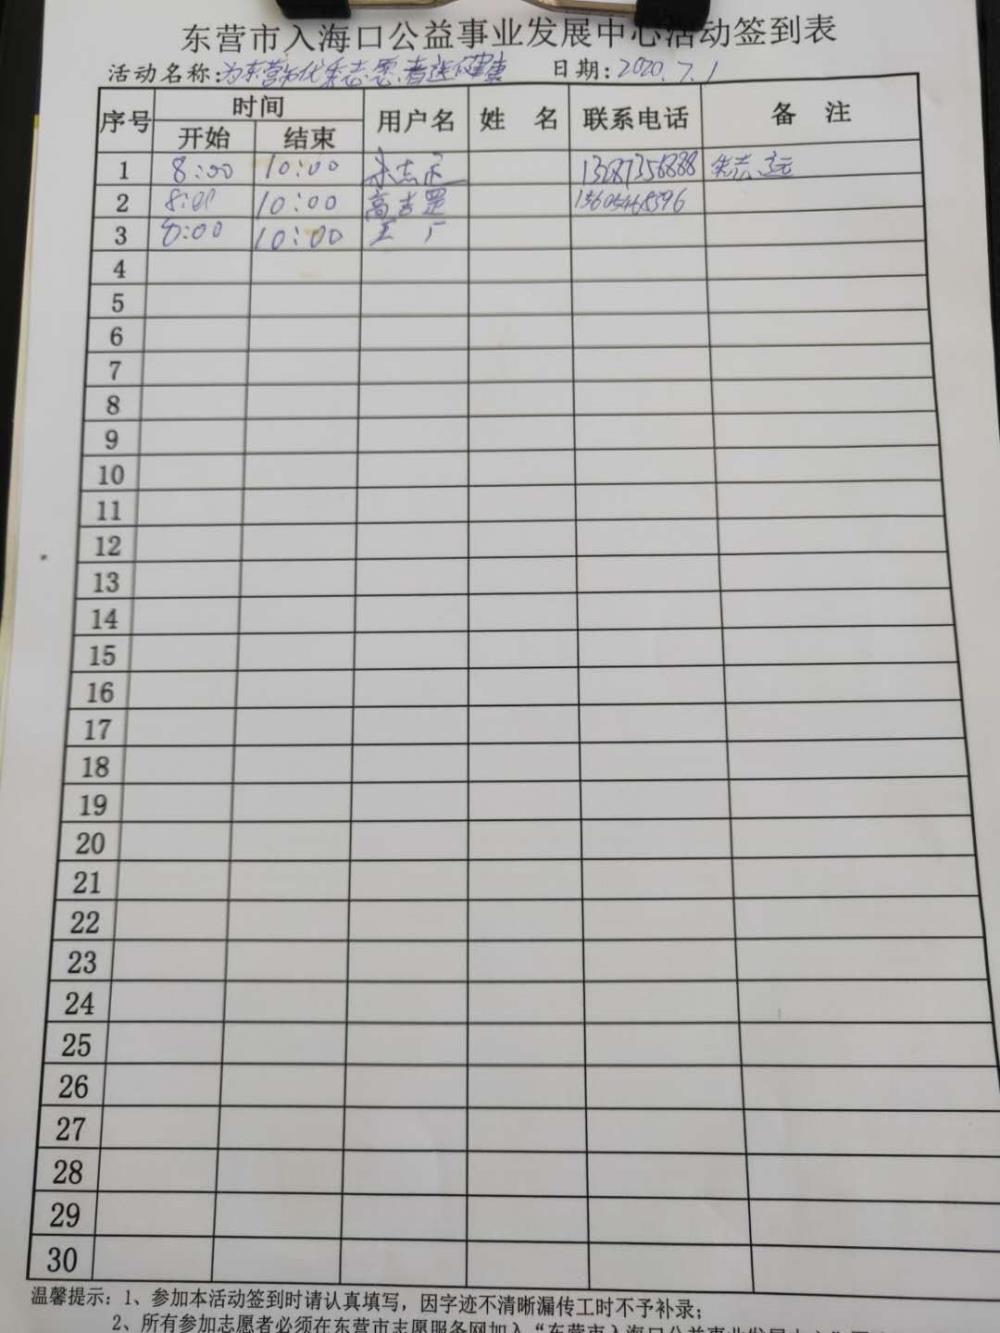 东营市入海口公益事业发展中心活动签到表
活动名称:为东营市优秀志愿者送健康 日期:2020.7.1
序号 时间 用户名 姓 名 联系电话 备 注
开始 结束
1 8:00 10:00 13287356888
2 8:00 10:00 高吉星
3 8:00 10:00 王 广
4
5
6
7
8
9
10
11
12
13
14
15
16
17
18
19
20
21
22
23
24
25
26
27
28
29
30
温馨提示:1、参加本活动签到时请认真填写,因字迹不清晰漏传工时不予补录;
2、所有参加志愿者必须在东营市志愿服务网加入“东营市入海口公益事业发展中心”